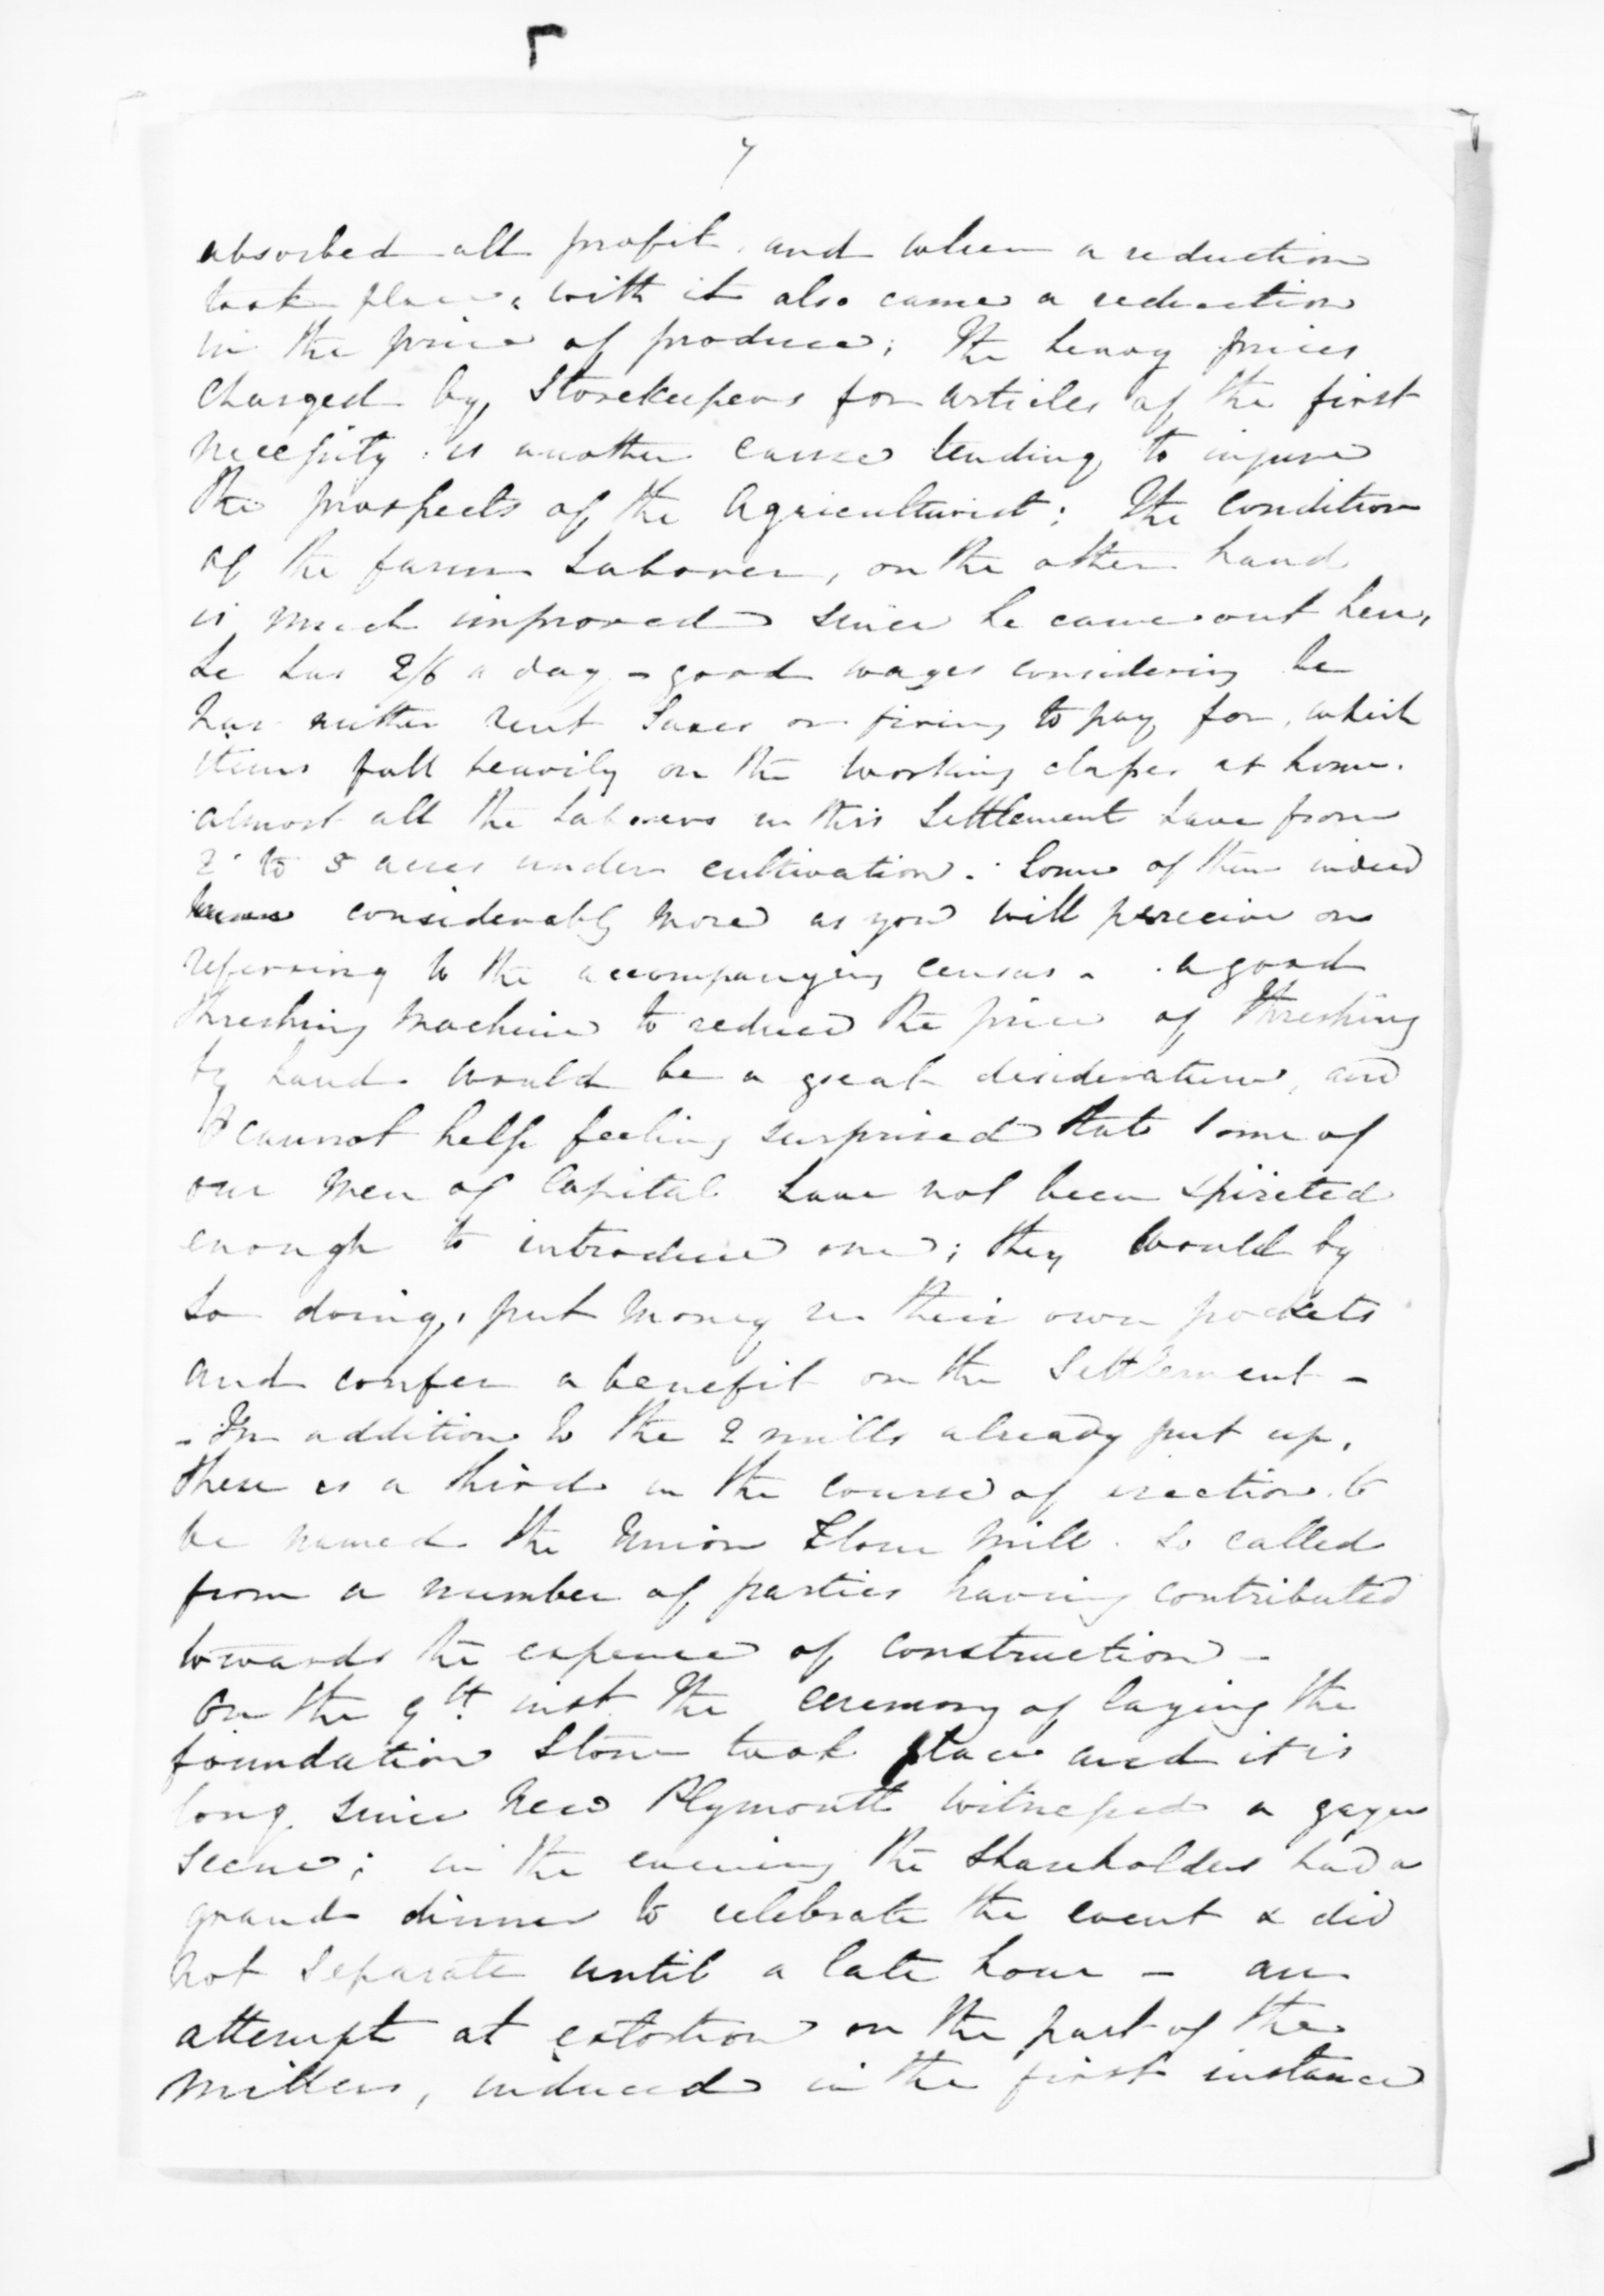 7
absorbed all profit, and when a reduction
took place, with it also came a reduction
in the price of produce; The heavy prices
charged by Storekeepers for articles of the first
necessity is another cause tending to injure
the prospects of the Agriculturist; The condition
of the farm Laborer, on the other hand
is much improved since he came out here,
he has 2/6 a day - good wages considering he
has neither rent taxes or firing to pay for, which
items fall heavily on the working classes at home.
almost all the Laborers in this Settlement have from
2 to 5 acres under cultivation. Some of them indeed
have considerably more as you will perceive on
referring to the accompanying census - a good
threshing machine to reduce the price of threshing
by hand would be a great desideratum, and
I cannot help feeling surprised that some of
our men of Capital have not been spirited
enough to introduce one; they would by
so doing, put money in their own pockets
and confer a benefit on the Settlement -
- In addition to the 2 mills already put up,
there is a third in the course of erection to
be named the Union Flour Mill. so called
from a number of parties having contributed
towards the expence of construction -
On the 9th. inst. the ceremony of laying the
foundation Stone took place and it is
long since New Plymouth witnessed a gayer
scene; in the evening the Shareholders had a
grand dinner to celebrate the event & did
not separate until a late hour - an
attempt at extortion on the part of the
millers, induced in the first instance